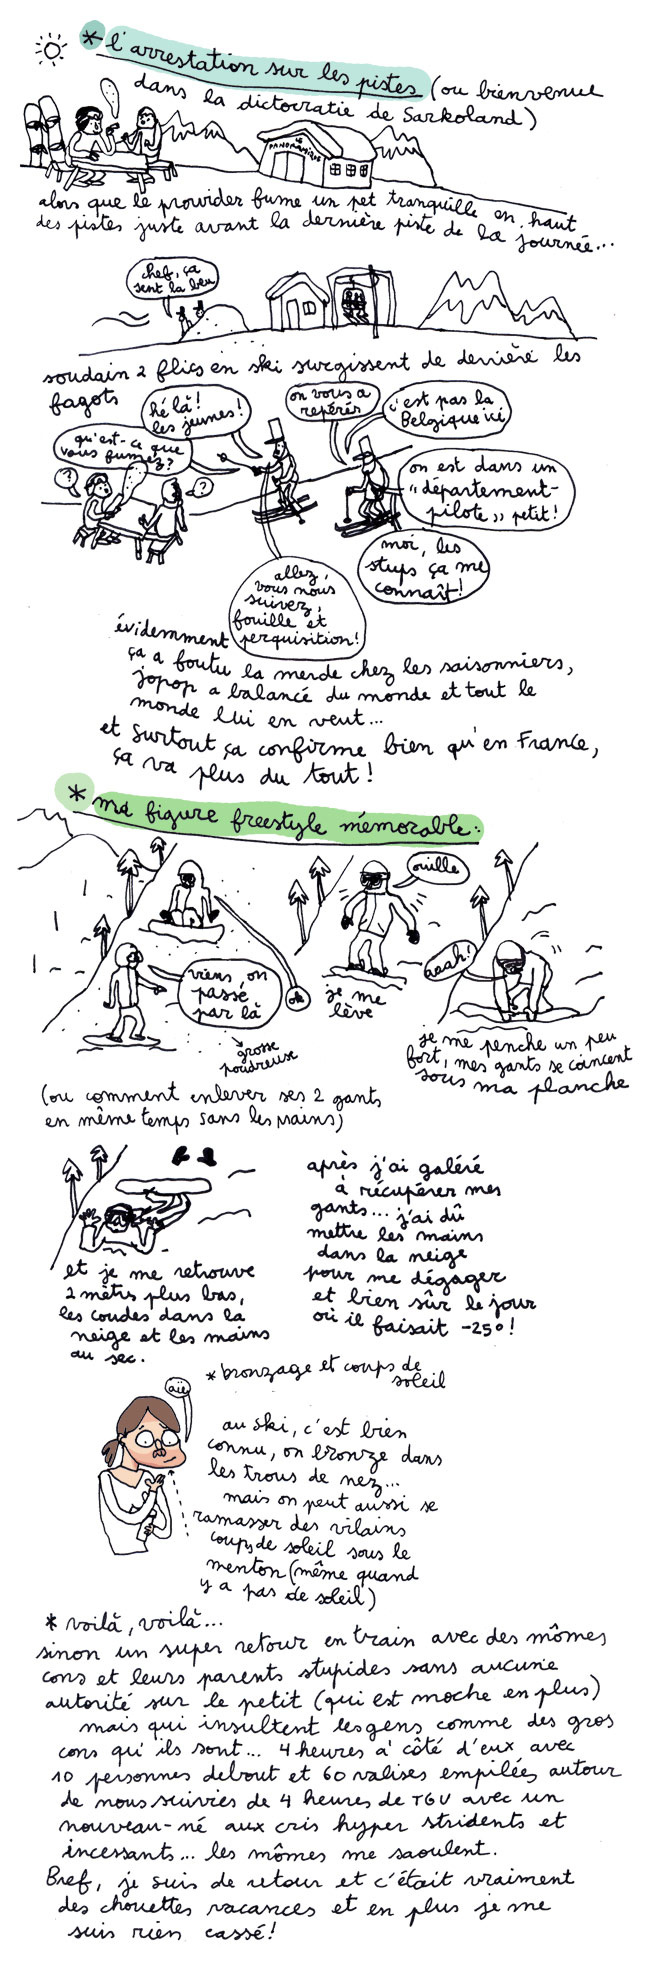 * l'arrestation sur les pistes (ou bienvenue
dans la dictocratie de Sarkoland)
LE PANORAMIQUE
alors que le prowrider fume un pet tranquille en haut
des pistes juste avant la dernière piste de la journée...
chef, ça
sent la beu
soudain 2 flics en ski surgissent de derrière les
fagots
hé là!
les jeunes!
on vous a
repérés
c'est pas la
Belgique ici
qu'est-ce que
vous fumez?
?
?
on est dans un
"département-
pilote" petit!
moi, les
stups ça me
connaît!
allez,
vous nous
suivez,
fouille et
perquisition!
évidemment
ça a foutu la merde chez les saisonniers,
jopop a balancé du monde et tout le
monde lui en veut...
et surtout ça confirme bien qu'en France,
ça va plus du tout!
* ma figure freestyle mémorable:
viens, on
passe
par là
ok
grosse
poudreuse
ouille
je me
lève
aaah!
je me penche un peu
fort, mes gants se coincent
sous ma planche
(ou comment enlever ses 2 gants
en même temps sans les mains)
et je me retrouve
2 mètres plus bas,
les coudes dans la
neige et les mains
au sec.
après j'ai galéré
à récupérer mes
gants... j'ai dû
mettre les mains
dans la neige
pour me dégager
et bien sûr le jour
où il faisait -25°!
* bronzage et coups de
soleil
aïe
au ski, c'est bien
connu, on bronze dans
les trous de nez...
mais on peut aussi se
ramasser des vilains
coups de soleil sous le
menton (même quand
y a pas de soleil)
* voilà, voilà...
sinon un super retour en train avec des mômes
cons et leurs parents stupides sans aucune
autorité sur le petit (qui est moche en plus)
mais qui insultent les gens comme des gros
cons qu'ils sont... 4 heures à côté d'eux avec
10 personnes debout et 60 valises empilées autour
de nous suivies de 4 heures de TGV avec un
nouveau-né aux cris hyper stridents et
incessants... les mômes me saoulent.
Bref, je suis de retour et c'était vraiment
des chouettes vacances et en plus je me
suis rien cassé!